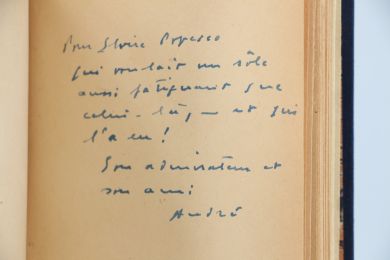 Pour Elvire Popesco
qui voulait un rôle
aussi fatiguant que
celui-là, — et qui
l'a eu !
Son admirateur et
son ami
André